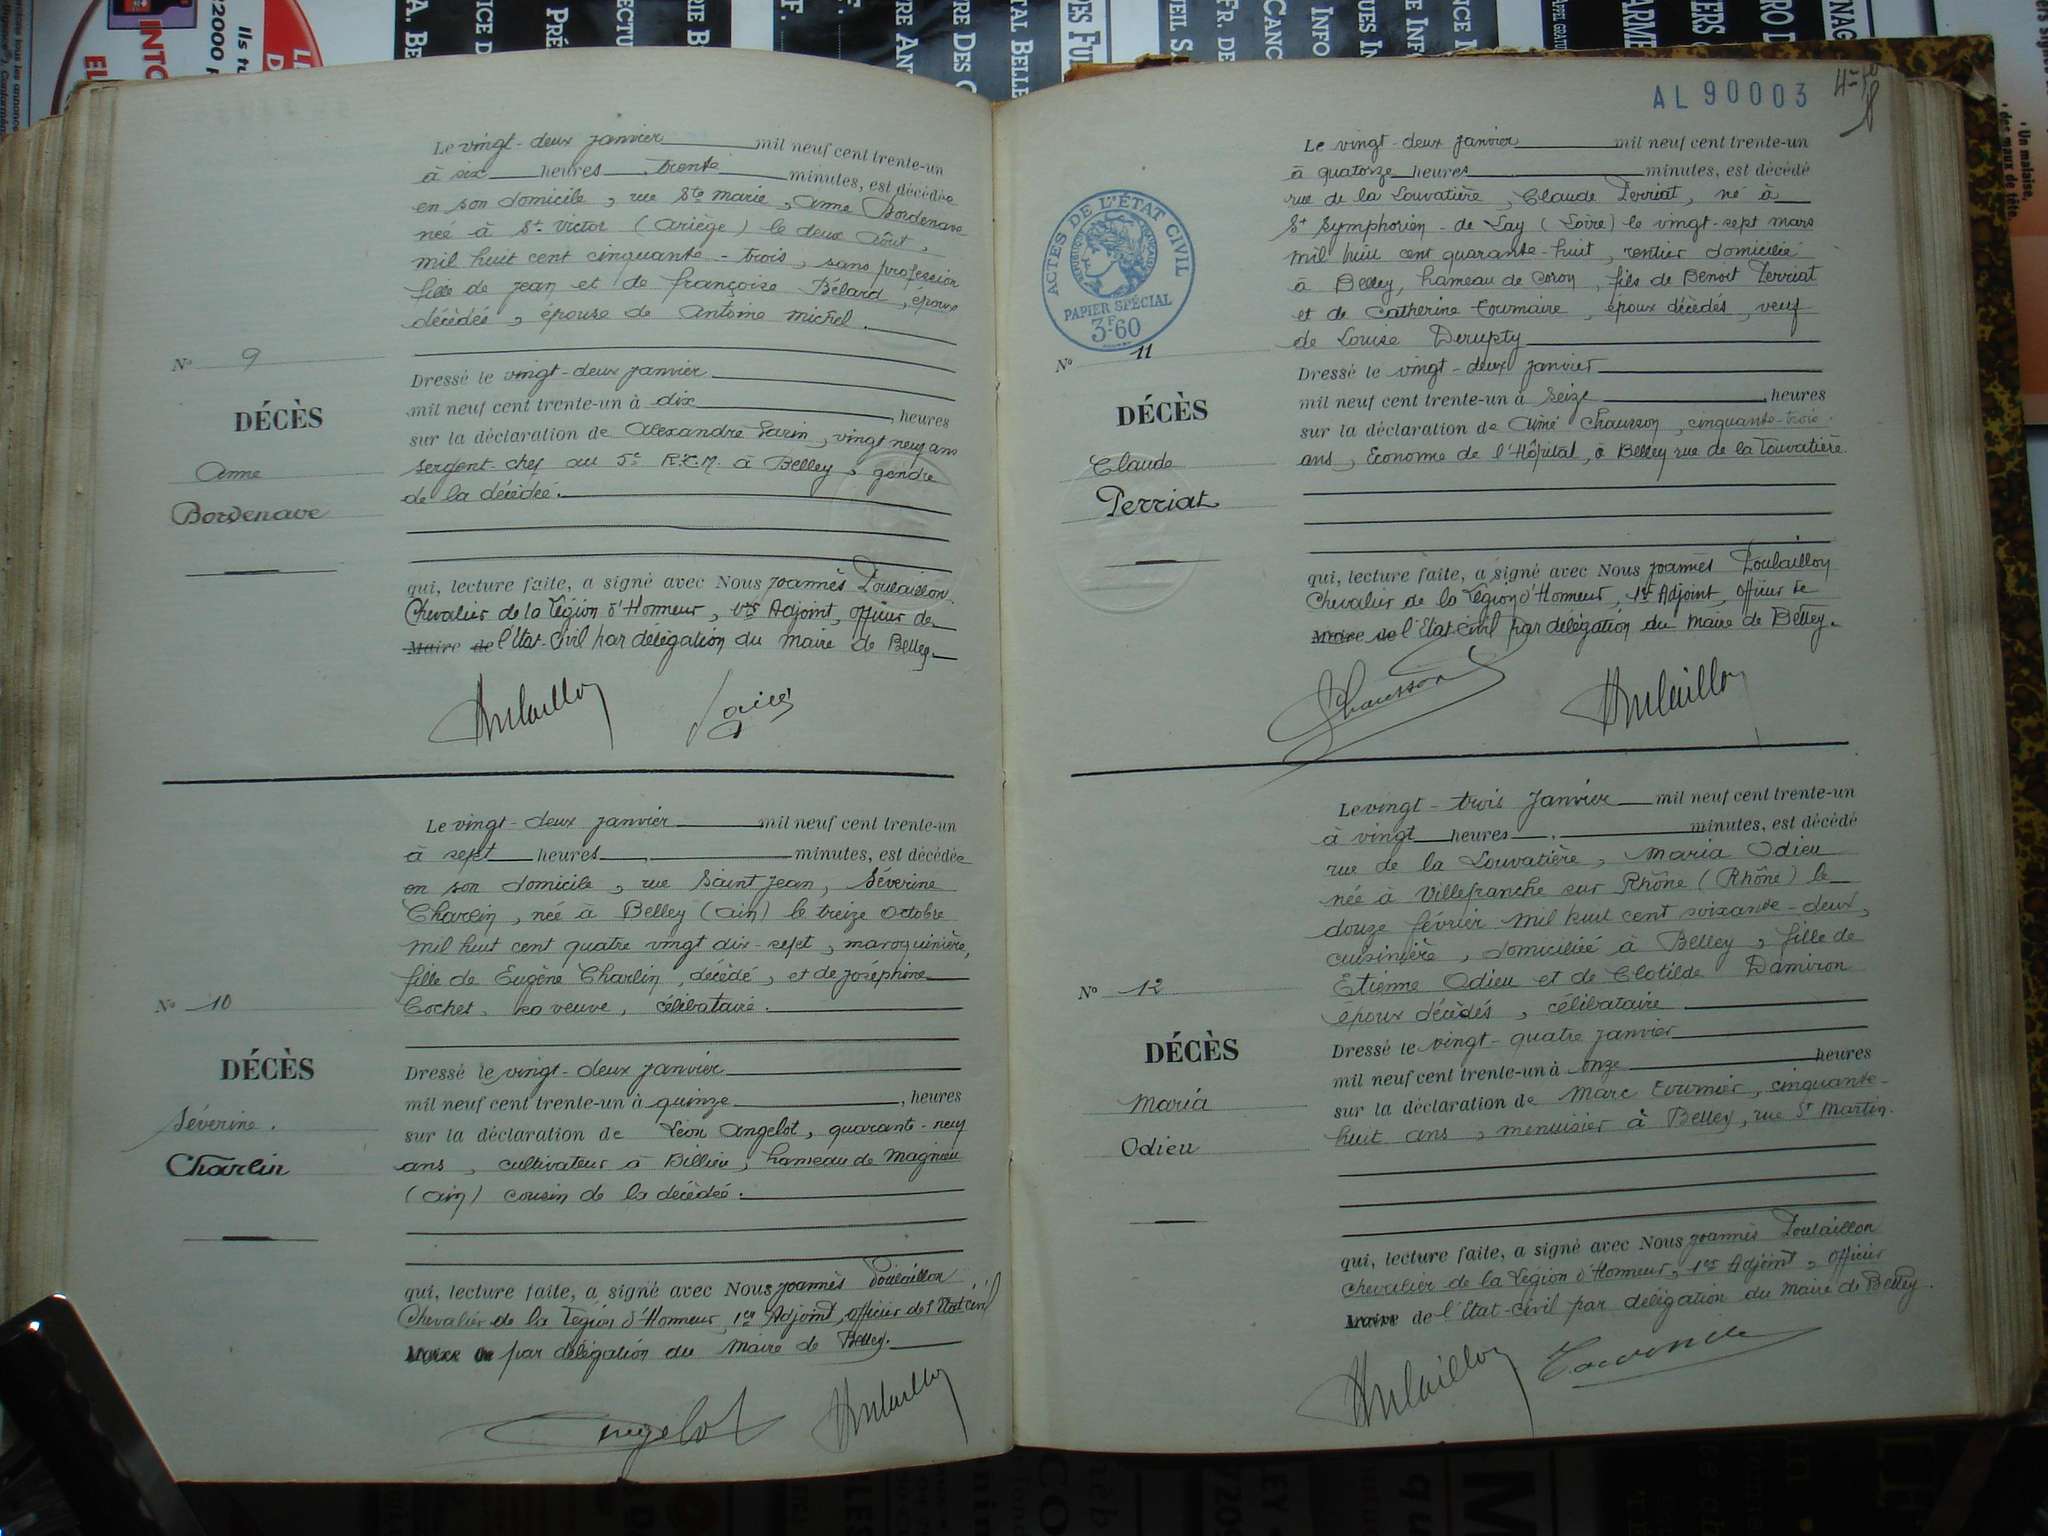 Le vingt-deux janvier mil neuf cent trente-un
à six heures, trente minutes, est décédée
en son domicile, rue Ste Marie, Anne Bordenave
née à St Victor (Ariège) le deux Août,
mil huit cent cinquante-trois, sans profession
fille de Jean et de françoise Bélard, époux
décédés, épouse de Antoine Michel.
No 9
DÉCÈS
Anne
Bordenave
Dressé le vingt-deux janvier
mil neuf cent trente-un à dix, heures
sur la déclaration de Alexandre, vingt neuf ans
sergent-chef au 5e à Belley, gendre
de la décédée.
qui, lecture faite, a signé avec Nous Joannès Poulaillon
Chevalier de la Légion d'Honneur, 1er Adjoint, Officier de
Maire de l'Etat-Civil par délégation du Maire de Belley.
Le vingt-deux janvier mil neuf cent trente-un
à sept heures, minutes, est décédée
en son domicile, rue Saint Jean, Séverine
Charlin, née à Belley (Ain) le treize Octobre
mil huit cent quatre vingt dix-sept, maroquinière,
fille de Eugène Charlin, décédé, et de Joséphine
Cochet, sa veuve, célibataire.
No 10
DÉCÈS
Séverine.
Charlin
Dressé le vingt-deux janvier
mil neuf cent trente-un à quinze, heures
sur la déclaration de Léon Angelot, quarante-neuf
ans, cultivateur à Billieu, hameau de Magnieu
(Ain) cousin de la décédée.
qui, lecture faite, a signé avec Nous Joannès Poulaillon
Chevalier de la Légion d'Honneur, 1er Adjoint, Officier de l'Etat Civil
Maire de par délégation du Maire de Belley.
Angelot
AL 90003
ACTES DE L'ÉTAT CIVIL
RÉPUBLIQUE FRANÇAISE
PAPIER SPÉCIAL
3F.60
Le vingt-deux janvier mil neuf cent trente-un
à quatorze heures minutes, est décédé
rue de la Louvatière, Claude Perriat, né à
St Symphorien-de-Lay (Loire) le vingt-sept mars
mil huit cent quarante-huit, rentier domicilié
à Belley, hameau de Coron, fils de Benoit Perriat
et de Catherine Tournaire, époux décédés, veuf
de Louise Derupty
No 11
DÉCÈS
Claude
Perriat
Dressé le vingt-deux janvier
mil neuf cent trente-un à seize, heures
sur la déclaration de Aimé Chausson, cinquante-trois
ans, Econome de l'Hôpital, à Belley rue de la Louvatière.
qui, lecture faite, a signé avec Nous Joannès Poulaillon
Chevalier de la Légion d'Honneur, 1er Adjoint, Officier de
Maire de l'Etat-Civil par délégation du Maire de Belley.
Chausson
Le vingt-trois Janvier mil neuf cent trente-un
à vingt heures, minutes, est décédé
rue de la Louvatière, Maria Odieu
née à Villefranche sur Rhône (Rhône) le
douze février mil huit cent soixante-deux,
cuisinière, domiciliée à Belley, fille de
Etienne Odieu et de Clotilde Damiron
époux décédés, célibataire
No 12
DÉCÈS
Maria
Odieu
Dressé le vingt-quatre janvier
mil neuf cent trente-un à onze heures
sur la déclaration de Marc Tournier, cinquante-
huit ans, menuisier à Belley, rue St Martin.
qui, lecture faite, a signé avec Nous Joannès Poulaillon
Chevalier de la Légion d'Honneur, 1er Adjoint, Officier
Maire de l'Etat-Civil par délégation du Maire de Belley.